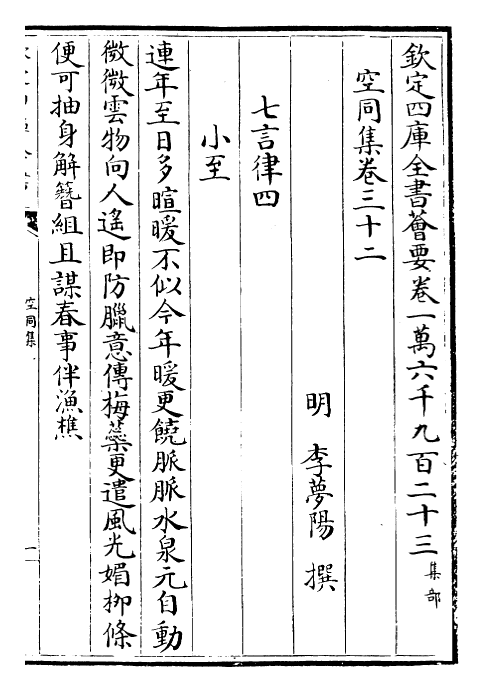 欽定四庫全書薈要卷一萬六千九百二十三集部
空同集卷三十二
明 李夢陽 撰
七言律四
小至
連年至日多暄暖不似今年暖更饒脈脈水泉元自動
微微雲物向人遙即防臘意傳梅蘂更遣風光媚柳條
便可抽身解簪組且謀春事伴漁樵
空同集
一